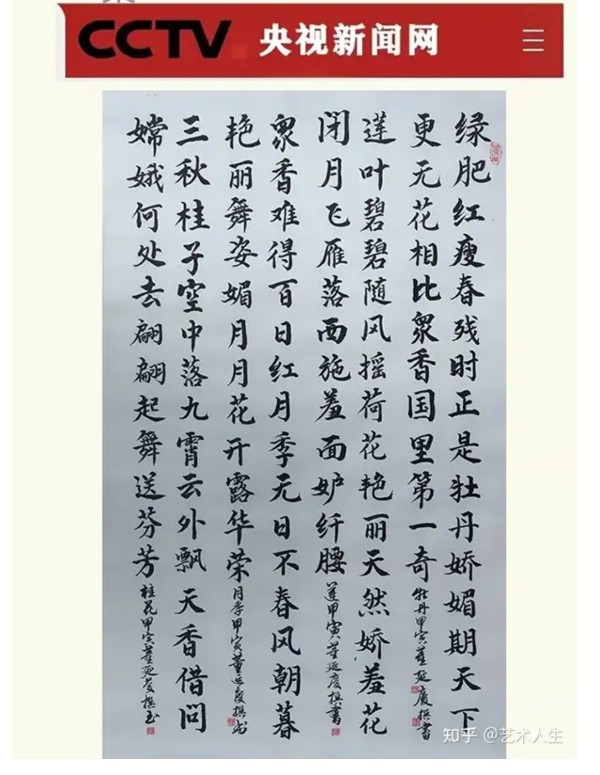 CCTV 央视新闻网
绿肥红瘦春残时正是牡丹娇媚期天下
更无花相比衆香国里第一奇 牡丹甲寅董延庆撰书
莲叶碧碧随风摇荷花艳丽天然娇羞花
闭月飞雁落西施羞面妒纤腰 莲甲寅董延庆撰书
衆香难得百日红月季无日不春风朝暮
艳丽舞姿媚月月花开露华荣 月季甲寅董延庆撰书
三秋桂子空中落九霄云外飘天香借问
嫦娥何处去翩翩起舞送芬芳 桂花甲寅董延庆撰书
知乎 @艺术人生